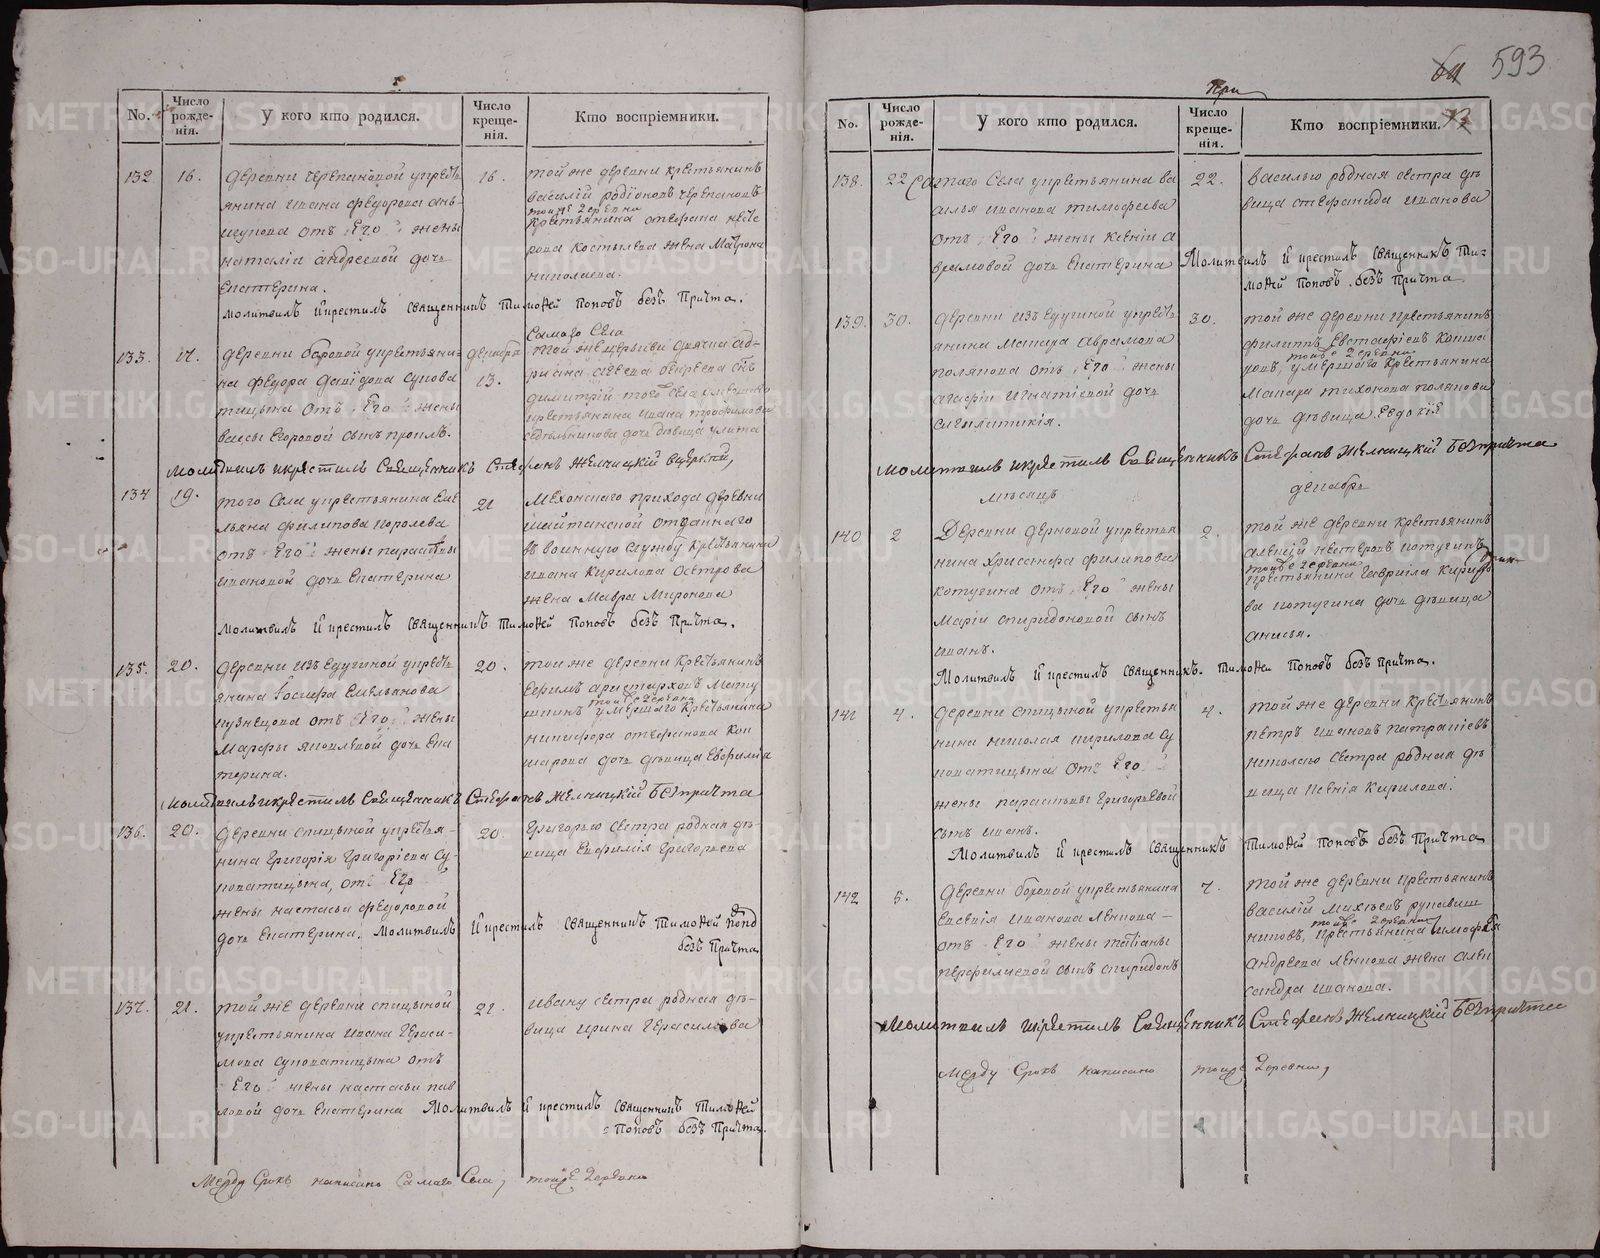 No.
Число рожде-нія.
У кого кто родился.
Число креще-нія.
Кто воспріемники.
132
16.
деревни черепановой у кресть
янина ивана федорова
отъ Его жены
наталіи андреевой дочь
Екатерина.
16.
той же деревни крестьянинъ
василій родіоновъ черепановъ
той же деревни
крестьянина стефана
костылева жена матрона
николаева.
молитвилъ и крестилъ священникъ Тимофей Поповъ безъ Причта.
133.
17.
деревни боровой у крестьяни-
на федора давидова супова
тицына отъ Его жены
васы Егоровой сынъ
декабря
13.
самаго села
той же церькви дьячка ад-
риана
димитрій того села умершаго
крестьянина ивана трофимова
дочь девица улита
молитвилъ и крестилъ священникъ Стефанъ Желницкій
134
19.
того села у крестьянина Еме
льяна филипова королева
отъ Его жены парасковьи
ивановой дочь Екатерина
21
Мехонскаго прихода деревни
шайтанской отданнаго
въ военную службу крестьянина
ивана кирилова острова
жена Мавра Миронова
молитвилъ и крестилъ священникъ Тимофей Поповъ безъ Причта.
135.
20.
деревни изъедугиной у кресть
янина Емельянова
кузнецова отъ Его жены
Марфы яковлевой дочь Ека
терина.
20.
той же деревни крестьянинъ
Ефимъ аристарховъ Мату
той же деревни
шкинъ умершаго крестьянина
никифора стефанова кок
шарова дочь девица Евфимія
молитвилъ и крестилъ священникъ Стефанъ Желницкій безъ причта
136.
20.
деревни спицыной у крестья-
нина Григорія Григоріева Су-
поватицына, отъ Его
жены настасьи федоровой
дочь Екатерина.
20
Григорью сестра родная де-
вица Евфимія Григорьева
Молитвилъ и крестилъ священникъ Тимофей Попов
безъ Причта
137.
21.
той же деревни спицыной
у крестьянина ивана Гераси-
мова суповатицына отъ
Его жены настасьи пав
ловой дочь Екатерина
21.
ивану сестра родная де-
вица ирина Герасимова
Молитвилъ и крестилъ священникъ Тимофей
Поповъ безъ Причта.
Между строкъ написано Самаго Села, тойже деревни
при
64
593
73
No.
Число рожде-нія.
У кого кто родился.
Число креще-нія.
Кто воспріемники.
138.
22
Самаго Села у крестьянина ва
силья иванова тимофеева
отъ Его жены ксеніи а
врамовой дочь Екатерина
22.
василью родная сестра де
вица стефанида иванова
Молитвилъ и крестилъ священникъ Ти-
мофей Поповъ безъ Причта
139.
30.
деревни изъедугиной у кресть
янина Макара аврамова
полякова отъ Его жены
агафіи игнатіевой дочь
сигклитикія.
30.
той же деревни крестьянинъ
филипъ Евстафіевъ кокша
той же деревни
ровъ, умершаго крестьянина
Макара тихонова полякова
дочь девица Евдокія
молитвилъ и крестилъ священникъ Стефанъ Желницкій безъ причта
месяцъ
декабрь
140
2
Деревни дерновой у крестья
нина хрисанфа филипова
котугина отъ Его жены
Маріи спиридоновой сынъ
иванъ.
2.
той же деревни крестьянинъ
алексій нестеровъ котугинъ
той же деревни
крестьянина гавріила кирил
ва котугина дочь девица
анисья.
Молитвилъ и крестилъ священникъ Тимофей Поповъ безъ Причта.
141
4.
деревни спицыной у крестья
нина николая кирилова су
поватицына отъ Его
жены парасковьи григорьевой
сынъ иванъ.
4.
той же деревни крестьянинъ
петръ ивановъ
николаю сестра родная де
вица ксенія кирилова.
Молитвилъ и крестилъ священникъ Тимофей Поповъ безъ Причта
142
5.
деревни боровой у крестьянина
Евсевія иванова ленкова-
отъ Его жены татіаны
перфильевой сынъ спиридонъ
7.
той же деревни крестьянинъ
василій михеевъ рукавиш
той же деревни
никовъ, крестьянина тимофея
андреева ленкова жена алек
сандра иванова.
Молитвилъ и крестилъ священникъ Стефанъ Желницкій безъ причта
Между строкъ написано тойже деревни,